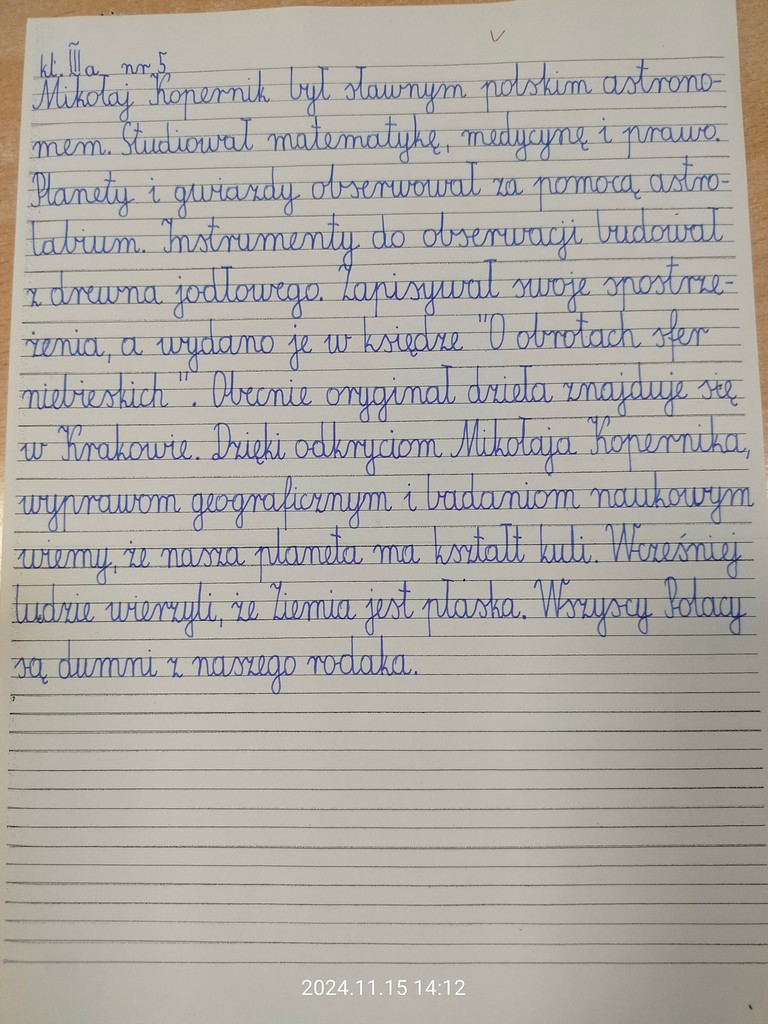 kl. III a nr 5
Mikołaj Kopernik był sławnym polskim astrono-
mem. Studiował matematykę, medycynę i prawo.
Planety i gwiazdy obserwował za pomocą astro-
labium. Instrumenty do obserwacji budował
z drewna jodłowego. Zapisywał swoje spostrze-
żenia, a wydano je w księdze "O obrotach sfer
niebieskich". Obecnie oryginał dzieła znajduje się
w Krakowie. Dzięki odkryciom Mikołaja Kopernika,
wyprawom geograficznym i badaniom naukowym
wiemy, że nasza planeta ma kształt kuli. Wcześniej
ludzie wierzyli, że Ziemia jest płaska. Wszyscy Polacy
są dumni z naszego rodaka.
2024.11.15 14:12